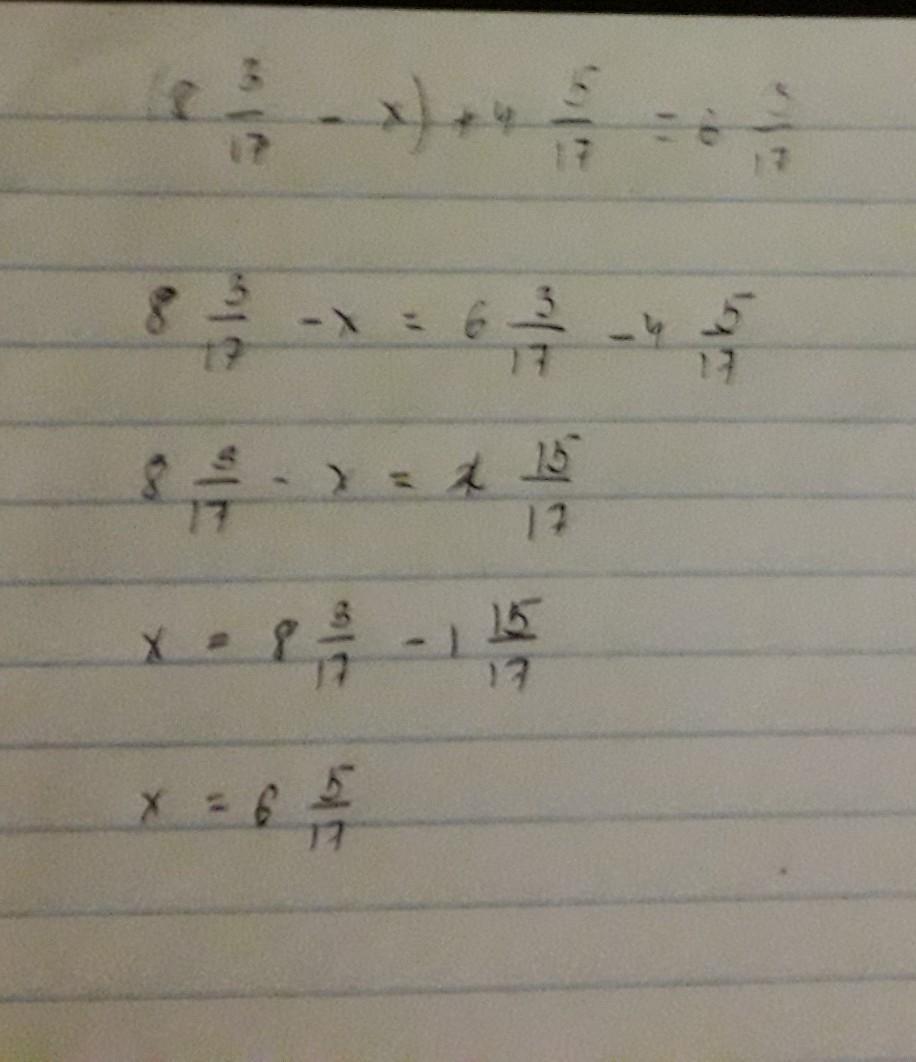 (8 3/17 - x) + 4 5/17 = 6 3/17
8 3/17 - x = 6 3/17 - 4 5/17
8 3/17 - x = 1 15/17
x = 8 3/17 - 1 15/17
x = 6 5/17